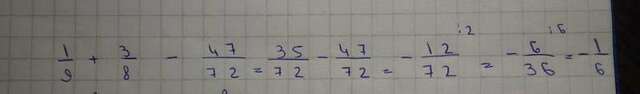 1/9 + 3/8 - 47/72 = 35/72 - 47/72 = - 12/72 :2 = - 6/36 :6 = - 1/6